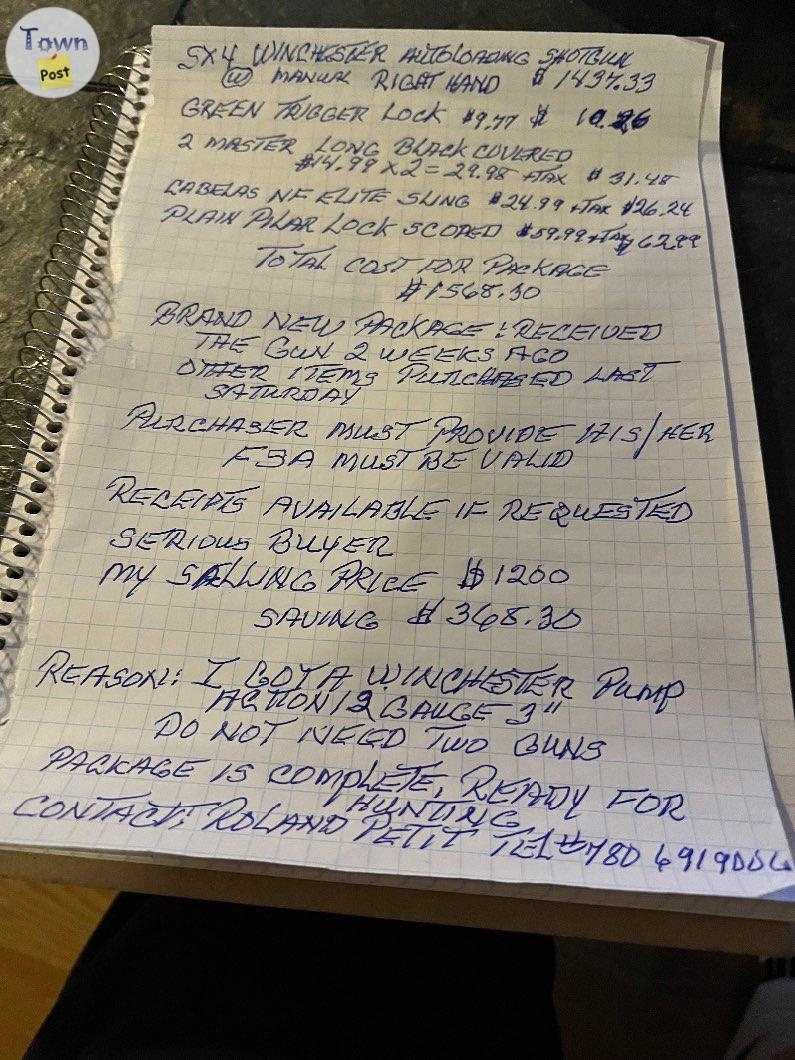 Town
Post
SX4 WINCHESTER AUTOLOADING SHOTGUN
W MANUAL RIGHT HAND $1437.33
GREEN TRIGGER LOCK $9.77 $ 10.26
2 MASTER LONG BLACK COVERED
$14.99 X 2 = 29.98 +TAX $31.48
CABELAS NF ELITE SLING $24.99 +TAX $26.24
PLAIN PILAR LOCK SCOPED $59.99 +TAX $62.99
TOTAL COST FOR PACKAGE
$1568.30
BRAND NEW PACKAGE: RECEIVED
THE GUN 2 WEEKS AGO
OTHER ITEMS PURCHASED LAST
SATURDAY
PURCHASER MUST PROVIDE HIS/HER
MUST BE VALID
RECEIPTS AVAILABLE IF REQUESTED
SERIOUS BUYER
MY SALLING PRICE $1200
SAVING $368.30
REASON: I GOT A WINCHESTER PUMP
ACTION 12 GAUGE 3"
DO NOT NEED TWO GUNS
PACKAGE IS COMPLETE, READY FOR
HUNTING
CONTACT: ROLAND PETIT TEL# 780 6919006